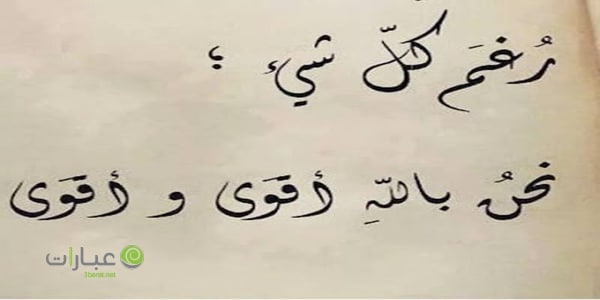 رُغمَ كلّ شيء ؛
نحنُ باللهِ أقوَى و أقوَى
عبارات
3barat.net